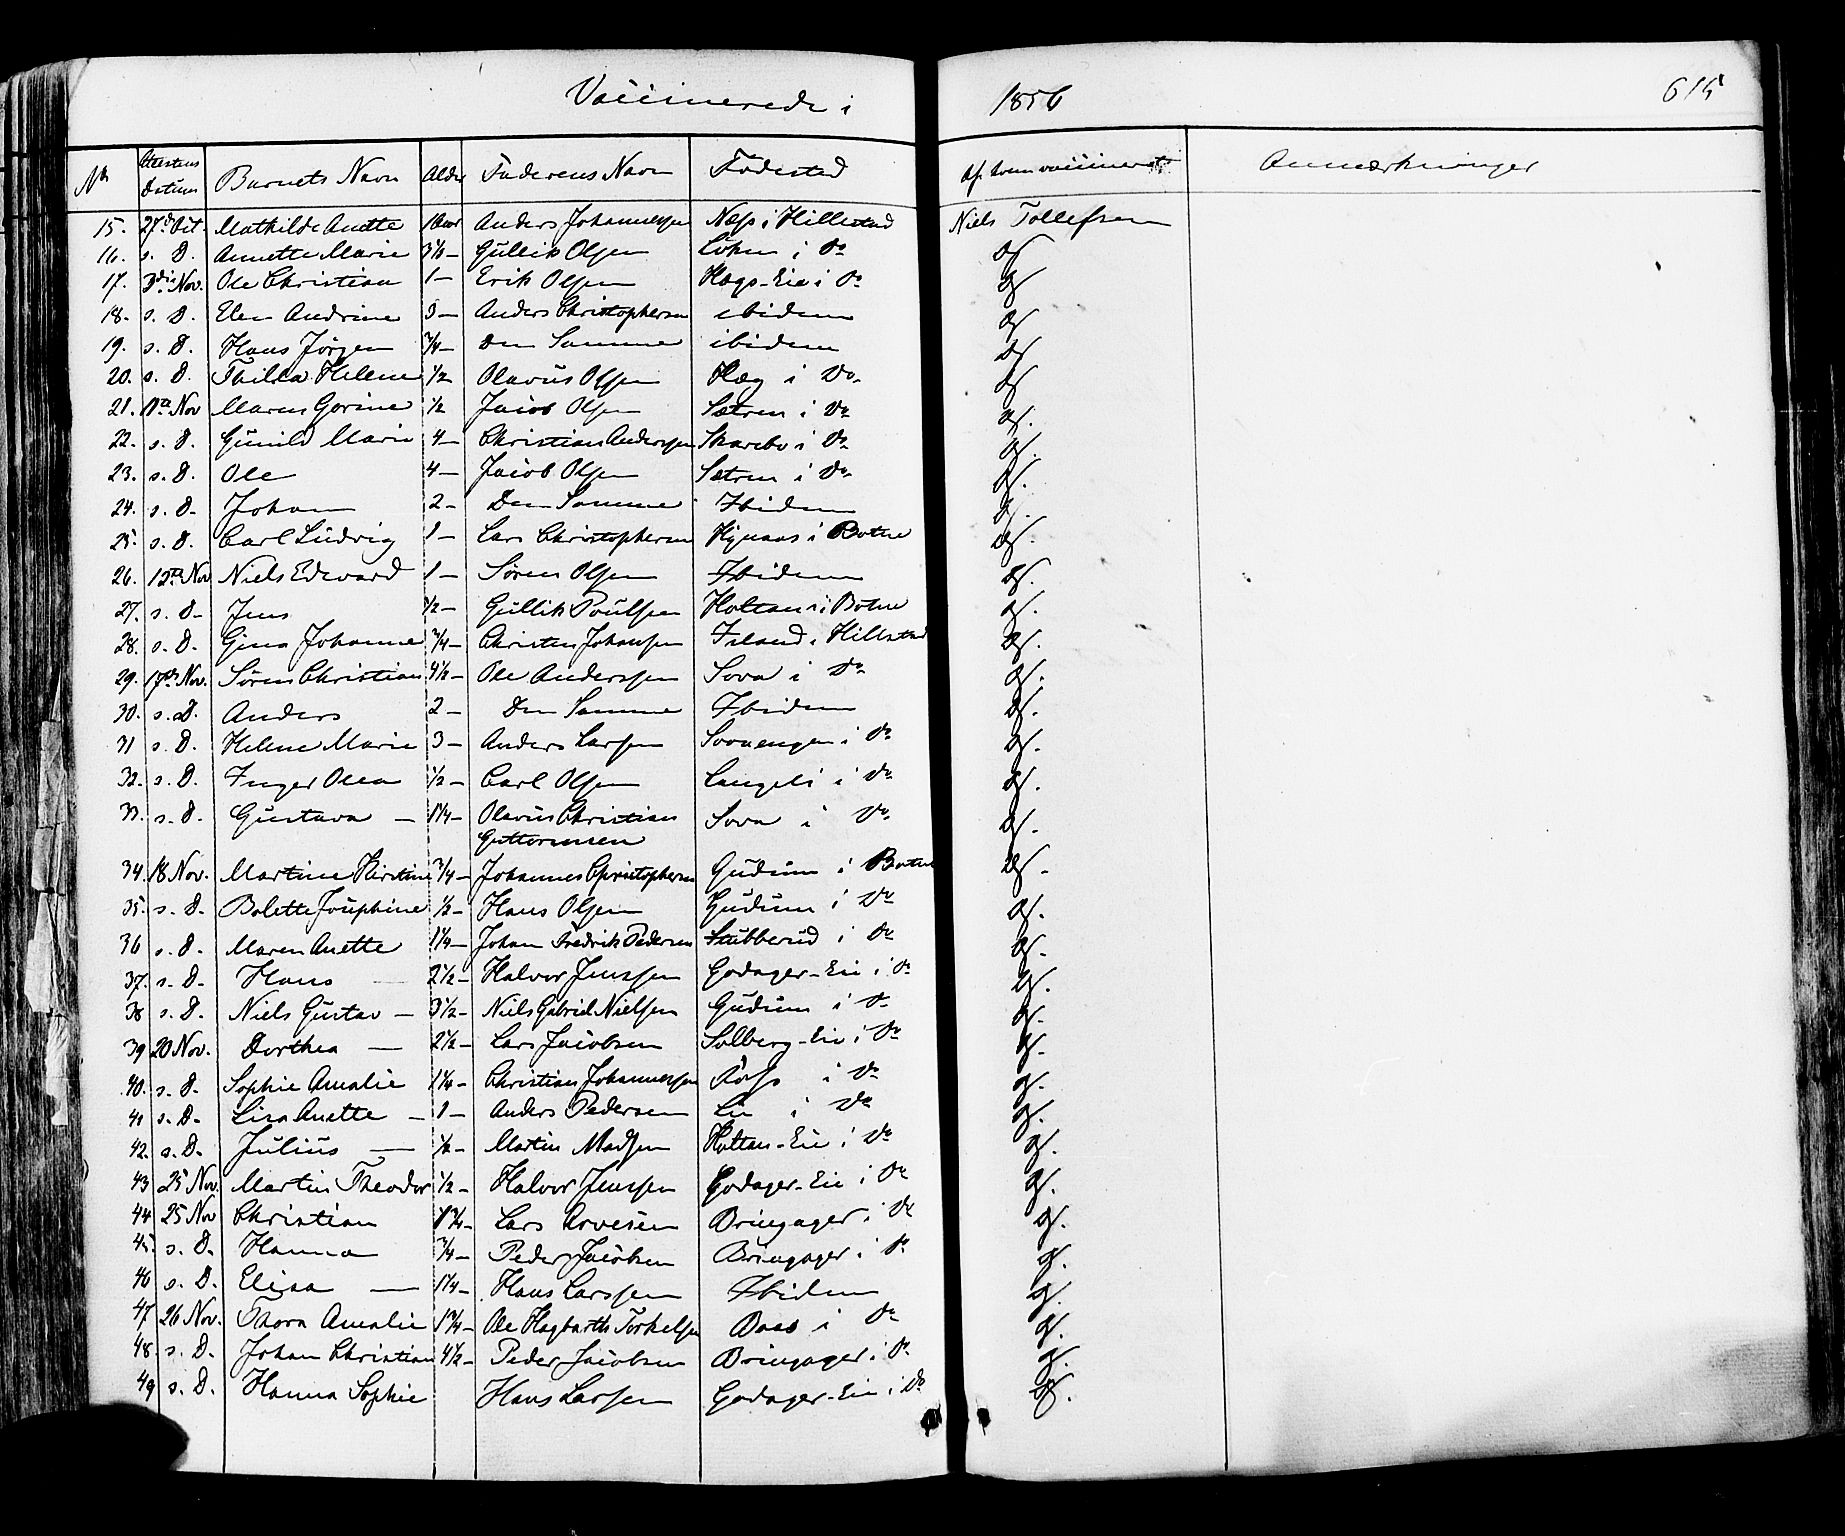 Vaccinerede i 1856 615
No Attestens Datum Barnets Navn Alder Faderens Navn Födested Af hvem vaccineret Anmærkninger
15. 27de Oct. Mathilde Anette 1 Aar Anders Johannessen Næss i Hillestad Niels Tollefsen
16. s. D. Annette Marie Gullik Olsen Löken i Do do
17. 3die Nov. Ole Christian 1 — Erik Olsen Hægs-Eie i Do do
18. s. D. Elen Andrine 3 — Anders Christophersen ibidem do
19. s. D. Hans Jørgen 3/4 — Den Samme ibidem do
20. s. D. Thilda Helene 1/2 Olavus Olsen Hæg i Do. do
21. Nov Maren Gorine 1/2 Jacob Olsen Sætren i Do do.
22. s. D. Gunild Marie 4 — Christian Anderssen Skarebo i Do do.
23. s. D. Ole 4 — Jacob Olsen Sætren i Do. do.
24. s. D. Johan 2 — Den Samme Ibidem do.
25. s. D. Carl Ludvig 1 — Lars Christophersen i Botne do.
26. 12te Nov Niels Edward 1 — Søren Olsen Ibidem do.
27. s. D. Jens 1/2 — Gullik Poulsen Holtan i Botne do.
28. s. D. Gina Johanne 3/4 — Christen Johansen Island i Hillestad do.
29. 17de Nov. Søren Christian 4 1/2 — Ole Anderssen Sova i Do do.
30. s. D. Anders 2 — Den Samme Ibidem do.
31 s. D. Helene Marie 3 — Anders Larsen Sovaengen i Do do.
32. s. D. Inger Olea 1/2 — Carl Olsen Langeli i Do do.
33. s. D. Gustava — 1 1/4 — Olavus Christian Sova i Do. do.
Guttormsen
34. 18 Nov. Martine Kirstine 3/4 — Johannes Christophersen Gudum i Botne do.
35. s. D. Bolette Josephine 1/2 — Hans Olsen Gudum i Do do.
36 s. D. Maren Anette 1 1/4 — Johan Fredrik Pedersen Stubberud i Do do.
37. s. D. Hans — 2 1/2 — Halvor Jenssen Godager-Eie i Do do.
38 s. D. Niels Gustav — 3 1/2 — Niels Gabriel Nielsen Gudum i Do do.
39 20 Nov. Dorthea — 2 1/2 — Lars Jacobsen Solberg-Eie i Do do.
40. s. D. Sophie Amalie 1 1/4 — Christian Johannessen i Do do.
41 s. D. Lisa Anette — 1 — Anders Pedersen Lie i Do do.
42. s. D. Julius — 1/2 — Martin Madsen Holtan-Eie i Do do.
43 25 Nov. Martin Theodor 1/2 — Halvor Jenssen Godager-Eie i Do do.
44 25 Nov Christian 1 3/4 — Lars Arvesen Bringager i Do do.
45. s. D. Hanna 3/4 — Peder Jacobsen Bringager i Do do.
46 s. D. Elisa — 1 1/4 — Hans Larssen Ibidem do.
47 26 Nov. Thora Amalie 1 3/4 — Ole Hagbarth Torkelsen Baas i Do do.
48. s. D. Johan Christian 4 1/2 — Peder Jacobsen Bringager i Do do.
49 s. D. Hanna Sophie Hans Larsen Godager-Eie i Do do.